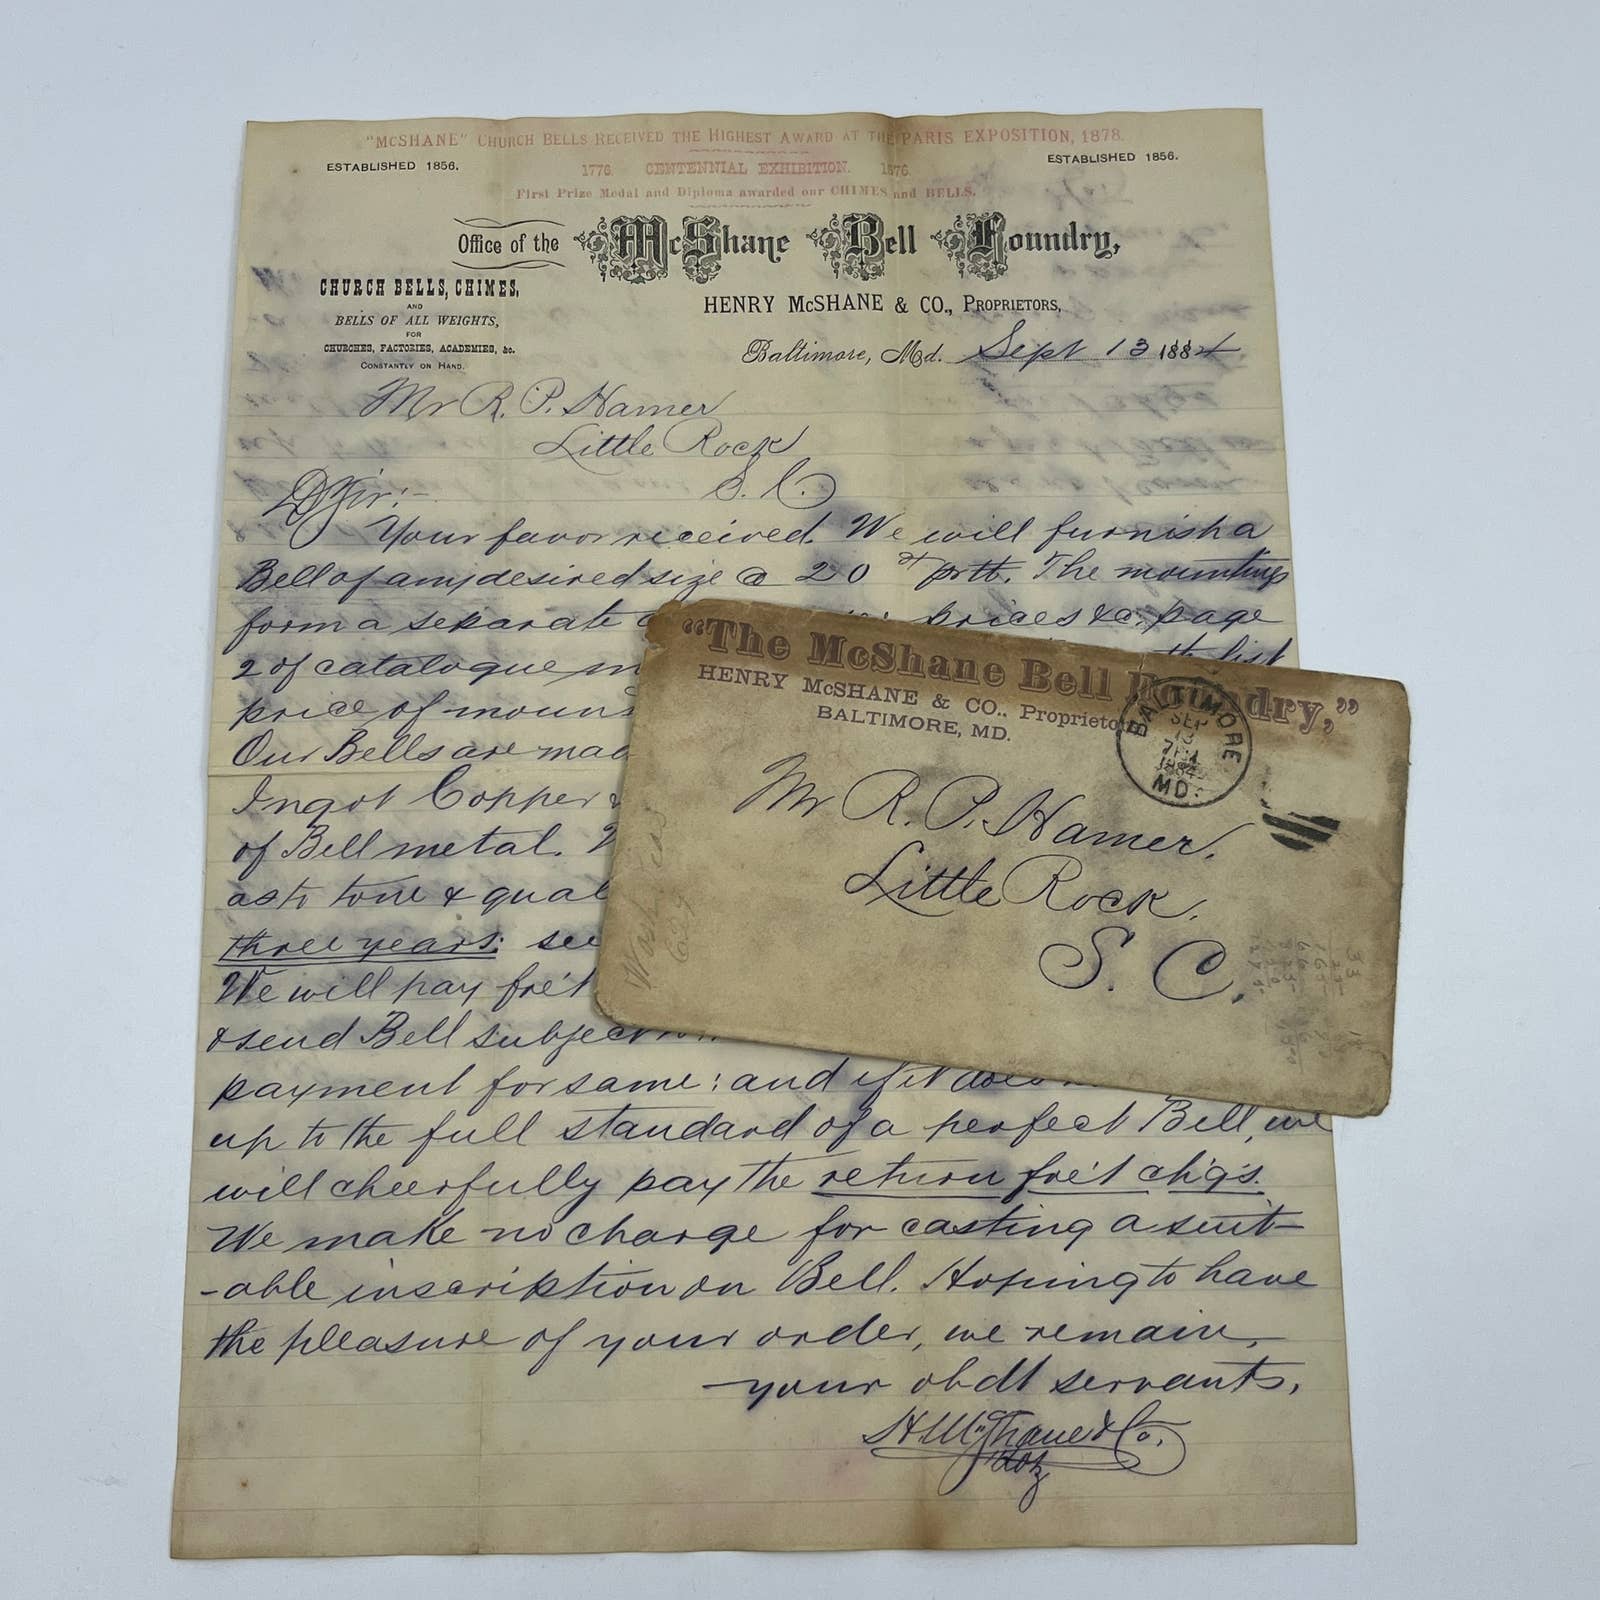 "McSHANE" CHURCH BELLS RECEIVED THE HIGHEST AWARD AT THE PARIS EXPOSITION, 1878.
ESTABLISHED 1856.
1776. CENTENNIAL EXHIBITION. 1876.
ESTABLISHED 1856.
First Prize Medal and Diploma awarded our CHIMES and BELLS.
Office of the McShane Bell Foundry,
CHURCH BELLS, CHIMES,
AND
BELLS OF ALL WEIGHTS,
FOR
CHURCHES, FACTORIES, ACADEMIES, &c.
CONSTANTLY ON HAND.
HENRY McSHANE & CO., PROPRIETORS,
Baltimore, Md. Sept 13 1884
Mr R. P. Hamer
Little Rock
S. C.
D Sir:-
Your favor received. We will furnish a
Bell of any desired size @ 20 cts pr lb. The mountings
form a separate prices &c. page
2 of catalogue the list
price of
Our Bells are
Ingot Copper
of Bell metal.
as to tone &
three years: see
We will pay fre't
& send Bell subject
payment for same: and if it does
up to the full standard of a perfect Bell, we
will cheerfully pay the return fre't ch'g's.
We make no charge for casting a suit-
-able inscription on Bell. Hoping to have
the pleasure of your order, we remain,
your obdt servants,
H McShane & Co.
"The McShane Bell Foundry,"
HENRY McSHANE & CO., Proprietors
BALTIMORE, MD.
BALTIMORE
SEP
13
7PM
1884
MD.
Mr R. P. Hamer.
Little Rock.
S. C.